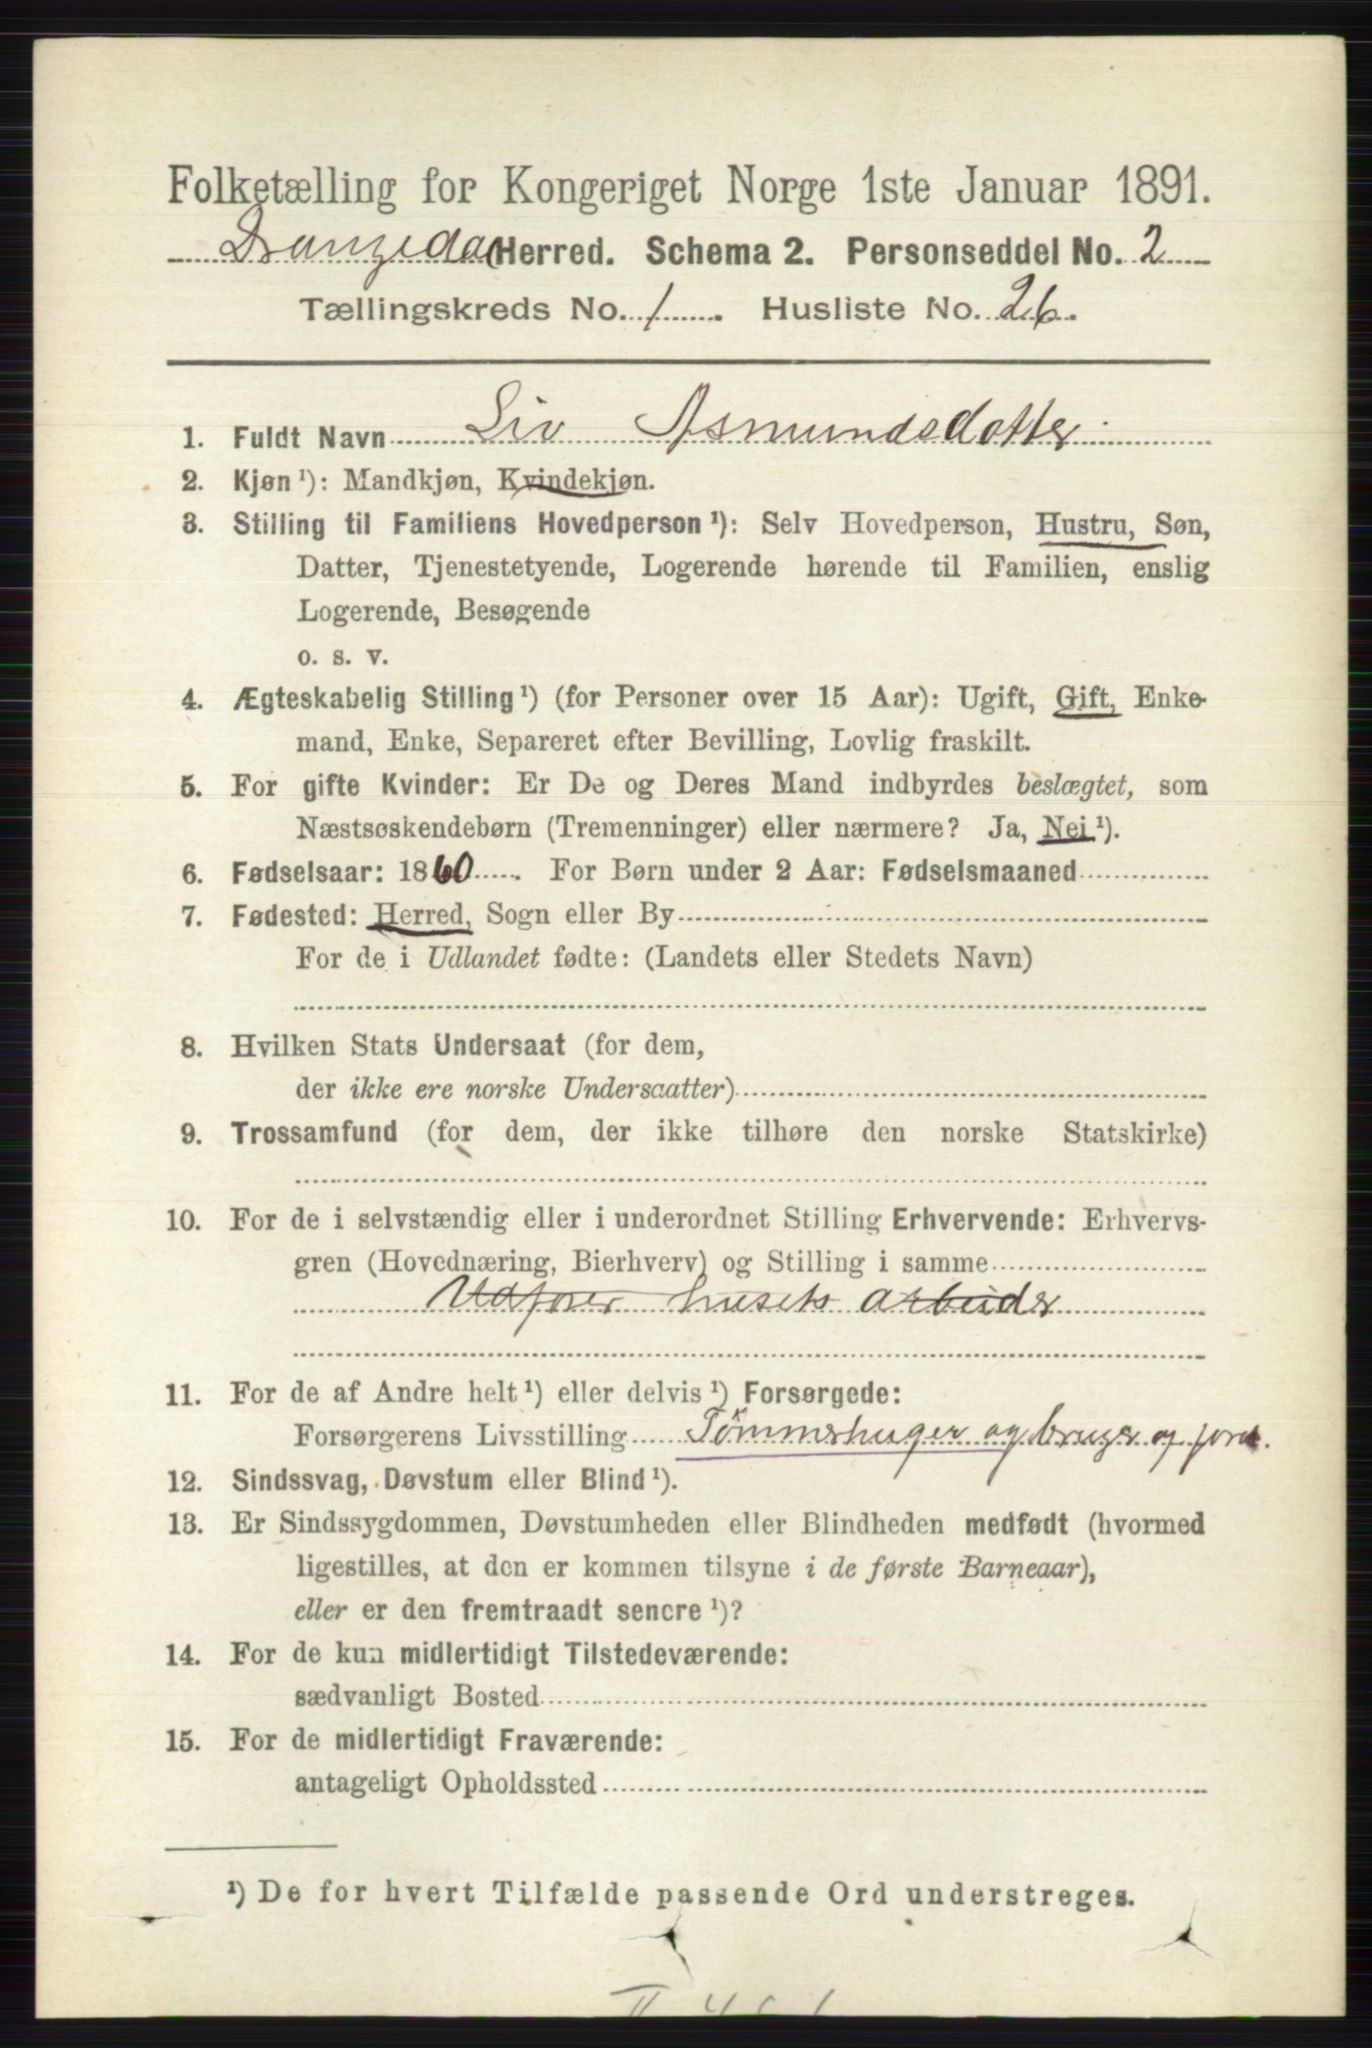 Folketælling for Kongeriget Norge 1ste Januar 1891.
Drangedal Herred. Schema 2. Personseddel No. 2
Tællingskreds No. 1. Husliste No. 26.
1. Fuldt Navn Liv Asmundsdatter
2. Kjøn¹): Mandkjøn, Kvindekjøn.
3. Stilling til Familiens Hovedperson¹): Selv Hovedperson, Hustru, Søn,
Datter, Tjenestetyende, Logerende hørende til Familien, enslig
Logerende, Besøgende
o. s. v.
4. Ægteskabelig Stilling¹) (for Personer over 15 Aar): Ugift, Gift, Enke-
mand, Enke, Separeret efter Bevilling, Lovlig fraskilt.
5. For gifte Kvinder: Er De og Deres Mand indbyrdes beslægtet, som
Næstsøskendebørn (Tremenninger) eller nærmere? Ja, Nei¹).
6. Fødselsaar: 1860. For Børn under 2 Aar: Fødselsmaaned
7. Fødested: Herred, Sogn eller By
For de i Udlandet fødte: (Landets eller Stedets Navn)
8. Hvilken Stats Undersaat (for dem,
der ikke ere norske Undersaatter)
9. Trossamfund (for dem, der ikke tilhøre den norske Statskirke)
10. For de i selvstændig eller i underordnet Stilling Erhvervende: Erhvervs-
gren (Hovednæring, Bierhverv) og Stilling i samme
Udfører husets arbeider
11. For de af Andre helt¹) eller delvis¹) Forsørgede:
Forsørgerens Livsstilling Tømmerhuger og bruger og jord.
12. Sindssvag, Døvstum eller Blind¹).
13. Er Sindssygdommen, Døvstumheden eller Blindheden medfødt (hvormed
ligestilles, at den er kommen tilsyne i de første Barneaar),
eller er den fremtraadt senere¹)?
14. For de kun midlertidigt Tilstedeværende:
sædvanligt Bosted
15. For de midlertidigt Fraværende:
antageligt Opholdssted
¹) De for hvert Tilfælde passende Ord understreges.